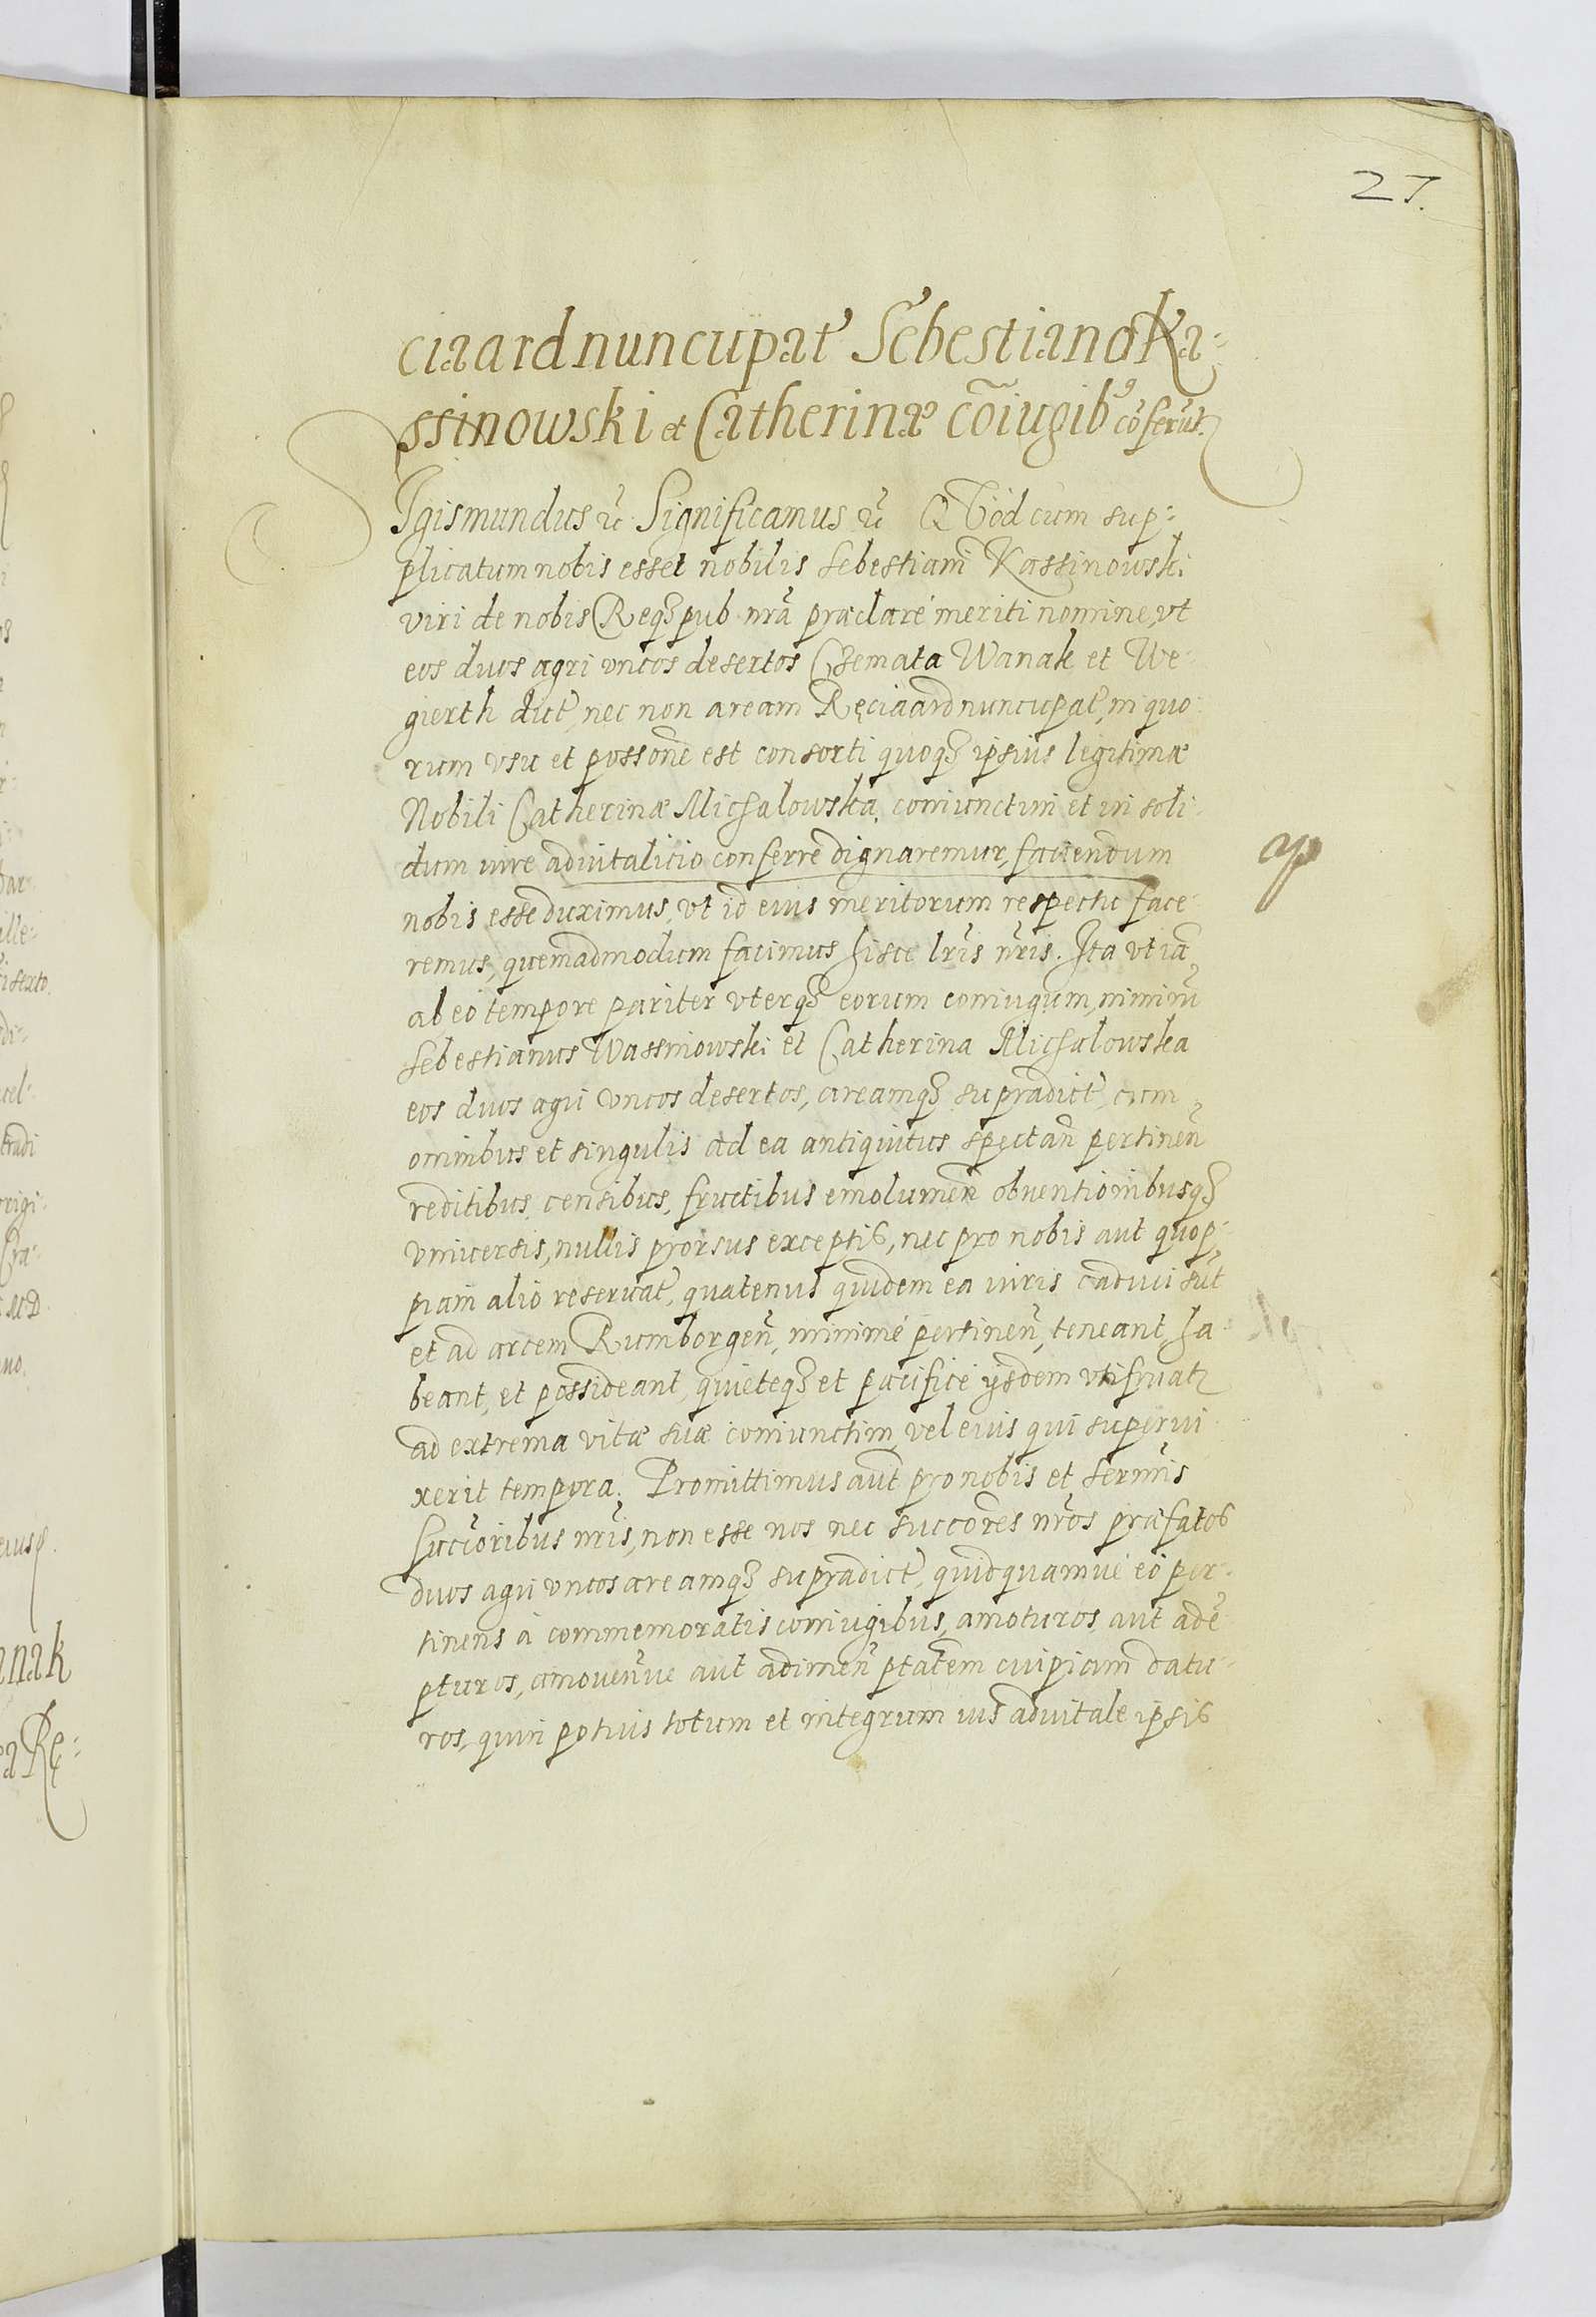 27.
ciaard nuncupat Sebestiano Ka-
ssinowski et Catherinæ cõiugib9 cõferũt
Sigismundus &c Significamus &c Quod cum sup-
plicatum nobis esset nobilis Sebestiani Kassinowski
viri de nobis Reqȝ pub nrã præclaré meriti nomine, vt
eos duos agri vncos desertos Czemata Wanak et We-
gierth dict, nec non aream Ręciaard nuncupat, in quo
rum vsu et possone est consorti quoqȝ ipsius legitimæ
Nobili Catherinæ Michalowska, coniunctim et in soli-
dum iure aduitalicio conferre dignaremur, faciendum
nobis esse duximus, vt id eius meritorum respectu face-
remus, quemadmodum facimus hisce lr̃is nr̃is. Ita vt iã
ab eo tempore pariter vterqȝ eorum coniugum, nimirũ
Sebestianus Wassinowski et Catherina Michalowska
eos duos agri vncos desertos, areamqȝ supradict, cum
omnibus et singulis ad ea antiquitus spectañ pertineñ
reditibus, censibus, fructibus emolumeñ obuentionibusqȝ
vniuersis, nullis prorsus exceptis, nec pro nobis aut quop-
piam alio reseruat, quatenus quidem ea iuris caduci sũt
et ad arcem Rumborgeñ, minimé pertineñ, teneant, ha-
beant, et possideant, quieteqȝ et pacificé ijsdem vti fruat
ad extrema vitæ suæ coniunctim, vel eius qui superui
xerit tempora. Promittimus aũt pro nobis et Serm̃is
succr̃oribus nr̃is, non esse nos nec succõres nr̃os præfatos
duos agri vncos areamqȝ supradict, quidquamué eó per-
tinens á commemoratis coniugibus, amoturos aut adẽ
pturos, amouendiue aut adimeñ ptatem cuipiam datu-
ros, quin potius totum et integrum ius aduitale ipsis